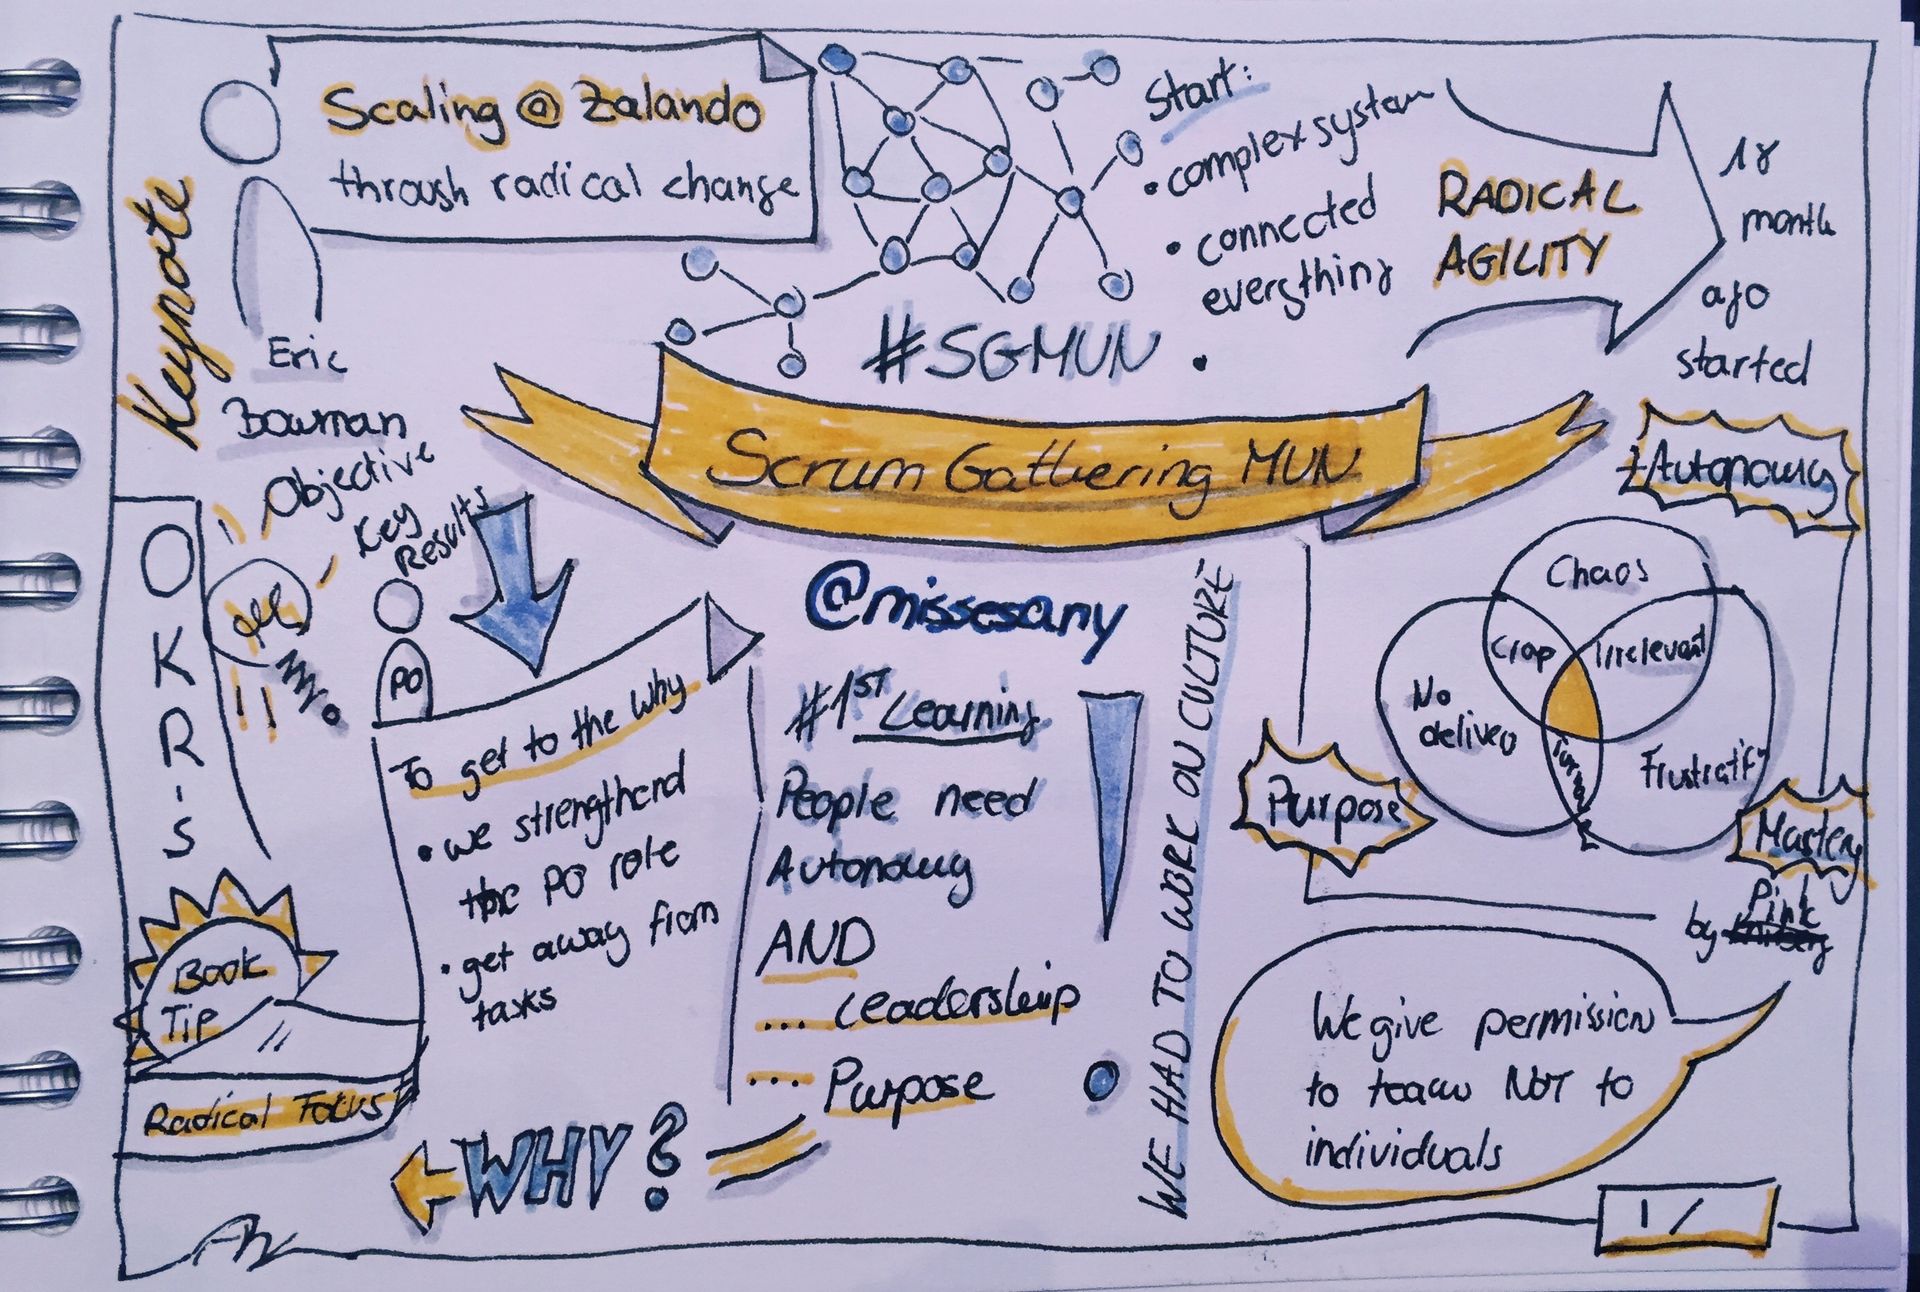 Keynote
Scaling @ Zalando
through radical change
Eric
Bowman
Start:
• complex system
• connected
everything
•
RADICAL
AGILITY
18
month
ago
started
#SGMUN
Scrum Gathering MUN
@missesany
OKR-S
Objective
Key
Results
PO
To get to the Why
• we strengthend
the PO role
• get away from
tasks
Book
Tip
Radical Focus
WHY?
#1ST Learning
People need
Autonomy
AND
... Leadership
... Purpose
WE HAD TO WORK ON CULTURE
Autonomy
Chaos
Crap
Irrelevant
No
delivery
Purpose
Mastery
by Pink
We give permission
to team NOT to
individuals
1/